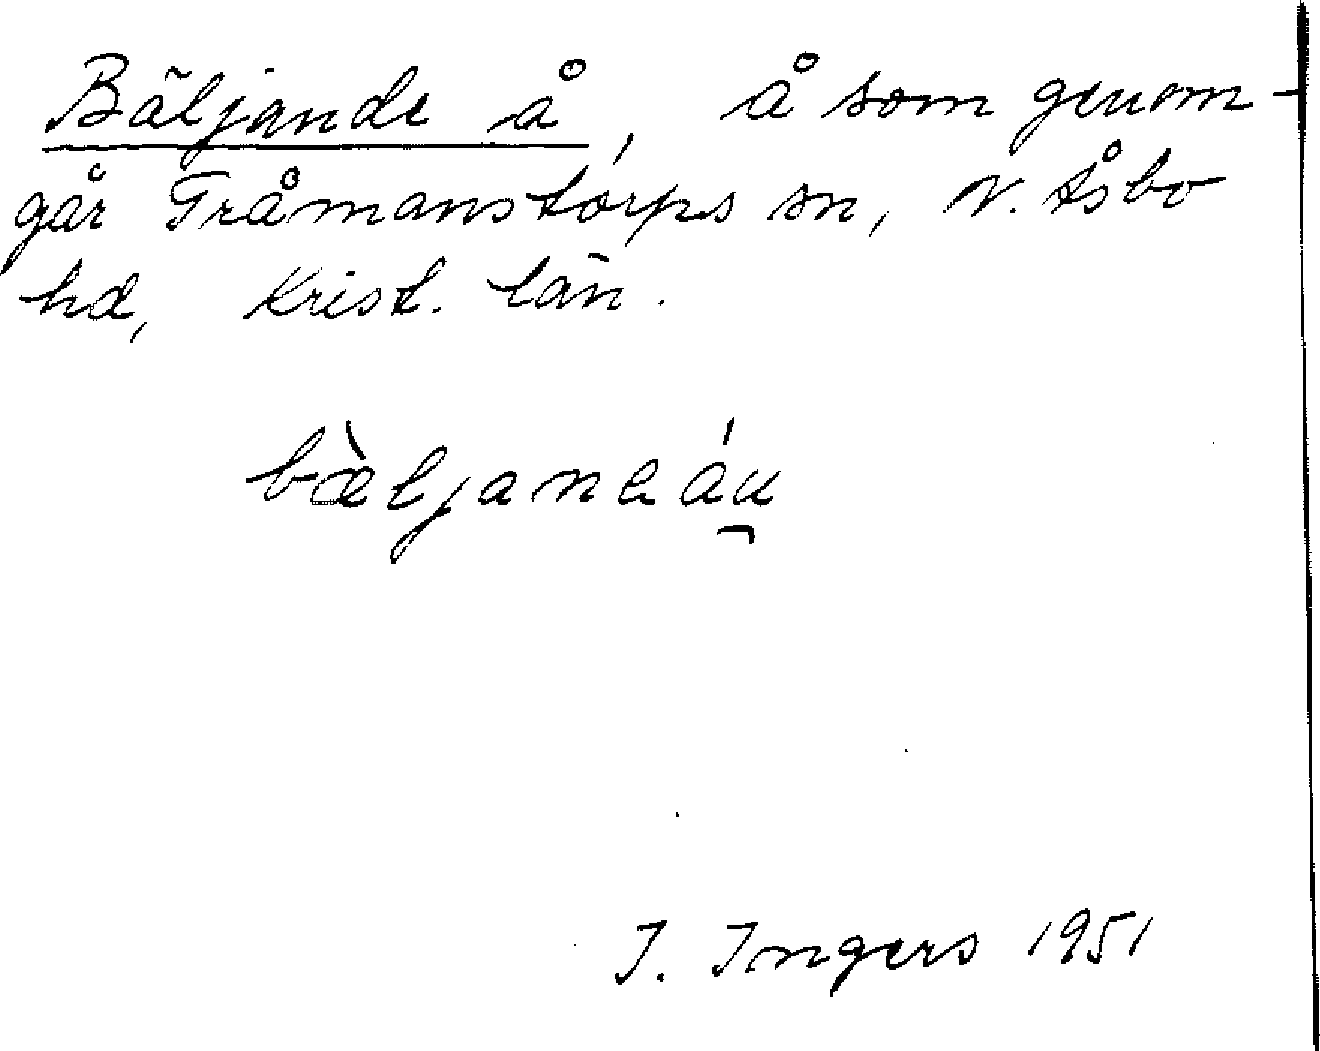 Bäljande å, å som genom-
går Tråmanstorps sn, N. Åsbo
hd, Krist. län.
bæ̀ljaneáu̯
I. Ingers 1951